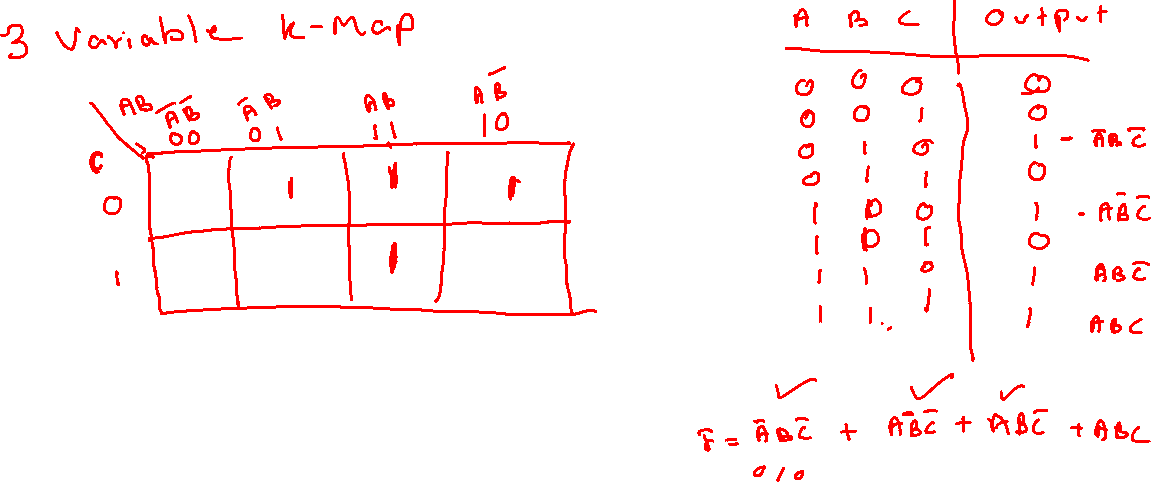 3 Variable K-Map
AB A̅B̅ A̅B AB AB̅
00 01 11 10
C
0 1 1 1
1 1
A B C Output
0 0 0 0
0 0 1 0
0 1 0 1 - A̅BC̅
0 1 1 0
1 0 0 1 - AB̅C̅
1 0 1 0
1 1 0 1 ABC̅
1 1 1 1 ABC
F = A̅BC̅ + AB̅C̅ + ABC̅ + ABC
0 1 0